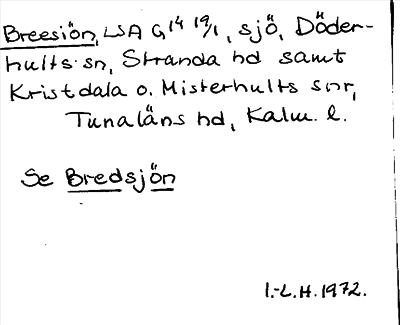 Breesiön, LSA G 14 19/1, sjö, Döder-
hults sn, Stranda hd samt
Kristdala o. Misterhults snr,
Tunaläns hd, Kalm. l.
Se Bredsjön
I.-L.H. 1972.